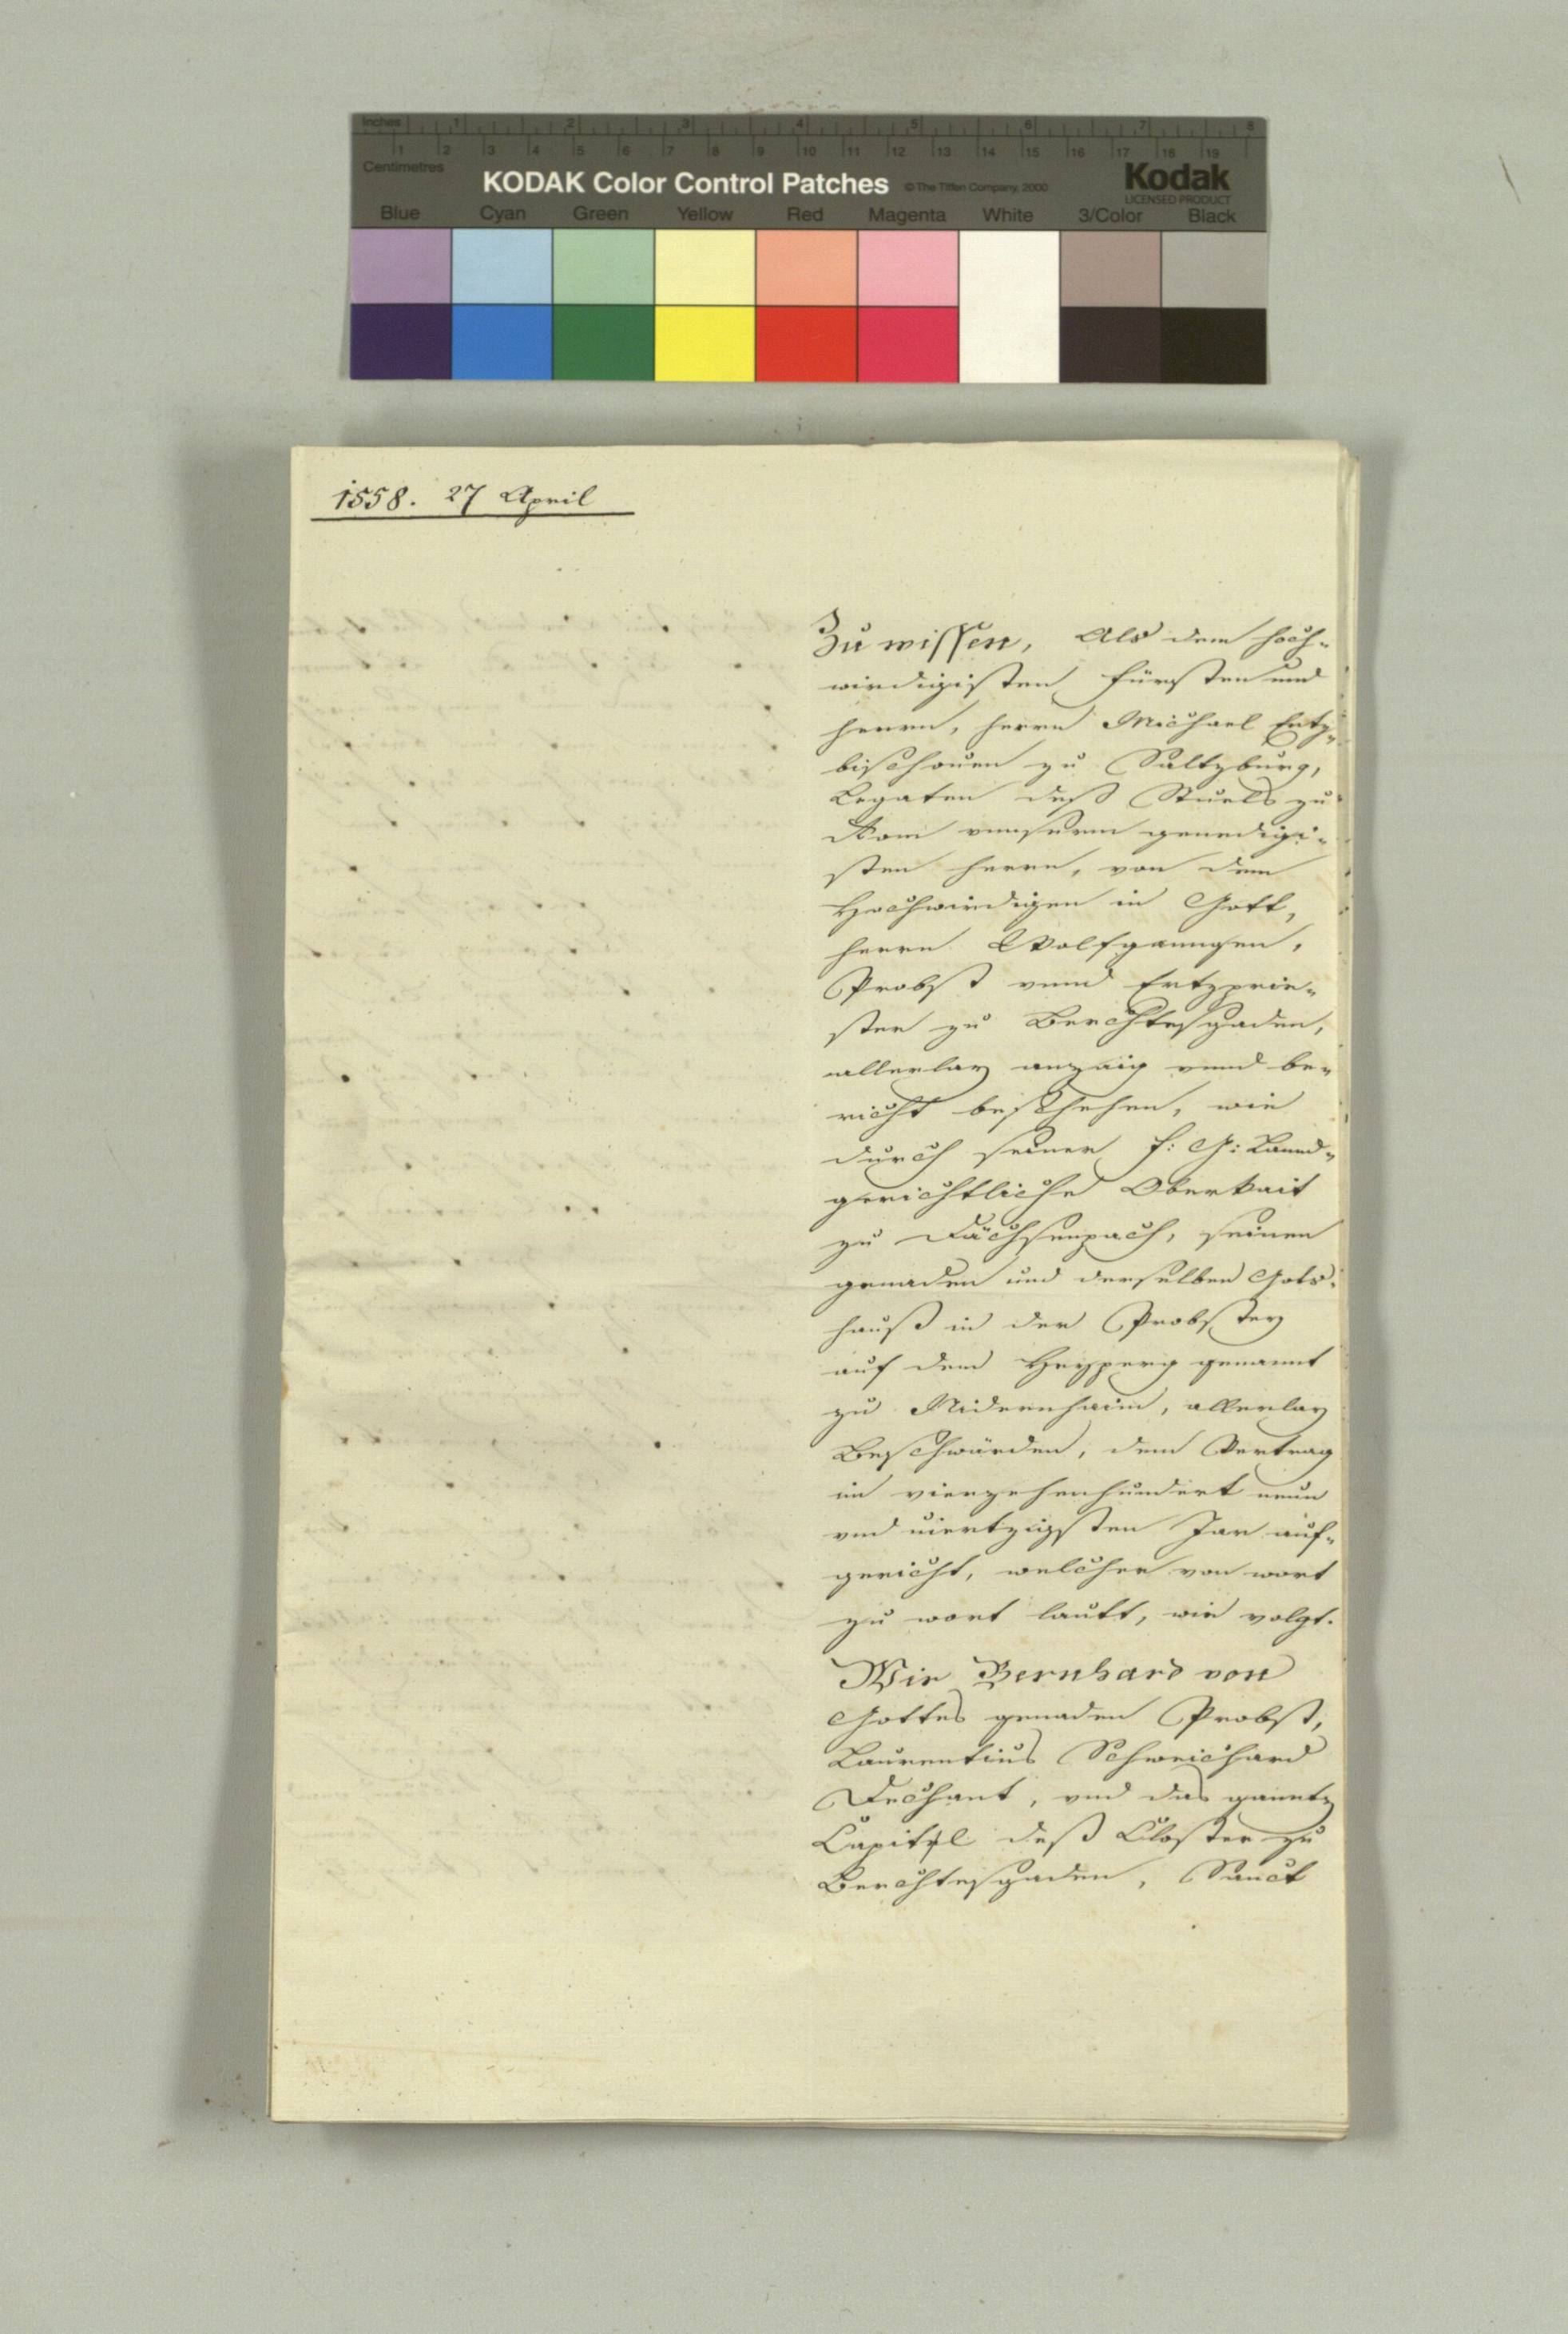 Inches 1 2 3 4 5 6 7 8
Centimetres 1 2 3 4 5 6 7 8 9 10 11 12 13 14 15 16 17 18 19
KODAK Color Control Patches © The Tiffen Company, 2000 Kodak
LICENSED PRODUCT
Blue Cyan Green Yellow Red Magenta White 3/Color Black
1558. 27 April
Zu wissen, Als dem hoch-
wirdigisten fürsten und
herrn, herrn Michael Ertz-
bischouen zu Saltzburg,
Legaten deß Stuels zu
Rom vnnserm genedigi-
sten herrn, von dem
Hochwirdigen in Gott,
herrn Wolfganngen,
Probst vnnd Ertzprie-
ster zu Berchtesgaden,
allerlay anzaig vnnd be-
richt beschehen, wie
durch seiner f: G: Lannd-
gerichtliche Oberkait
zu Däxsenpach, seinen
genaden und derselben Gots-
hauß in der Probstey
auf dem Heyperg genannt
zu Nidernhaim, allerlay
Beschwärden, dem Vertrag
im vierzehenhundert neun
vnd viertzigsten Jar auf-
gericht, welcher von wort
zu wort lautt, wie volgt.
Wir Bernhard von
Gottes genaden Probst,
Laurentius Schweichard
Dechant, vnd das ganntz
Capitl deß Closter zu
Berchtesgaden, Sanct